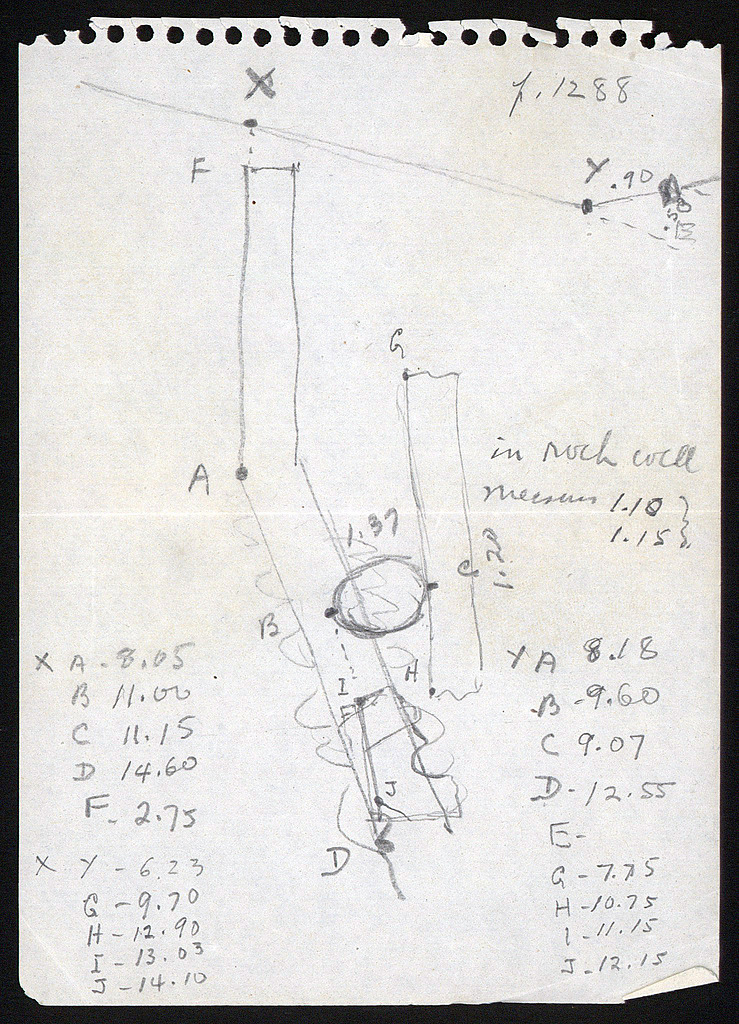 p.1288
X
F
Y .90
G
A
in rock wall
measures 1.10 }
1.15 }
1.37
C
1.20
B
H
I
J
D
X A - 8.05
B 11.00
C 11.15
D 14.60
F - 2.75
X Y - 6.23
G - 9.70
H - 12.90
I - 13.03
J - 14.10
Y A 8.18
B - 9.60
C 9.07
D - 12.55
E -
G - 7.75
H - 10.75
I - 11.15
J - 12.15